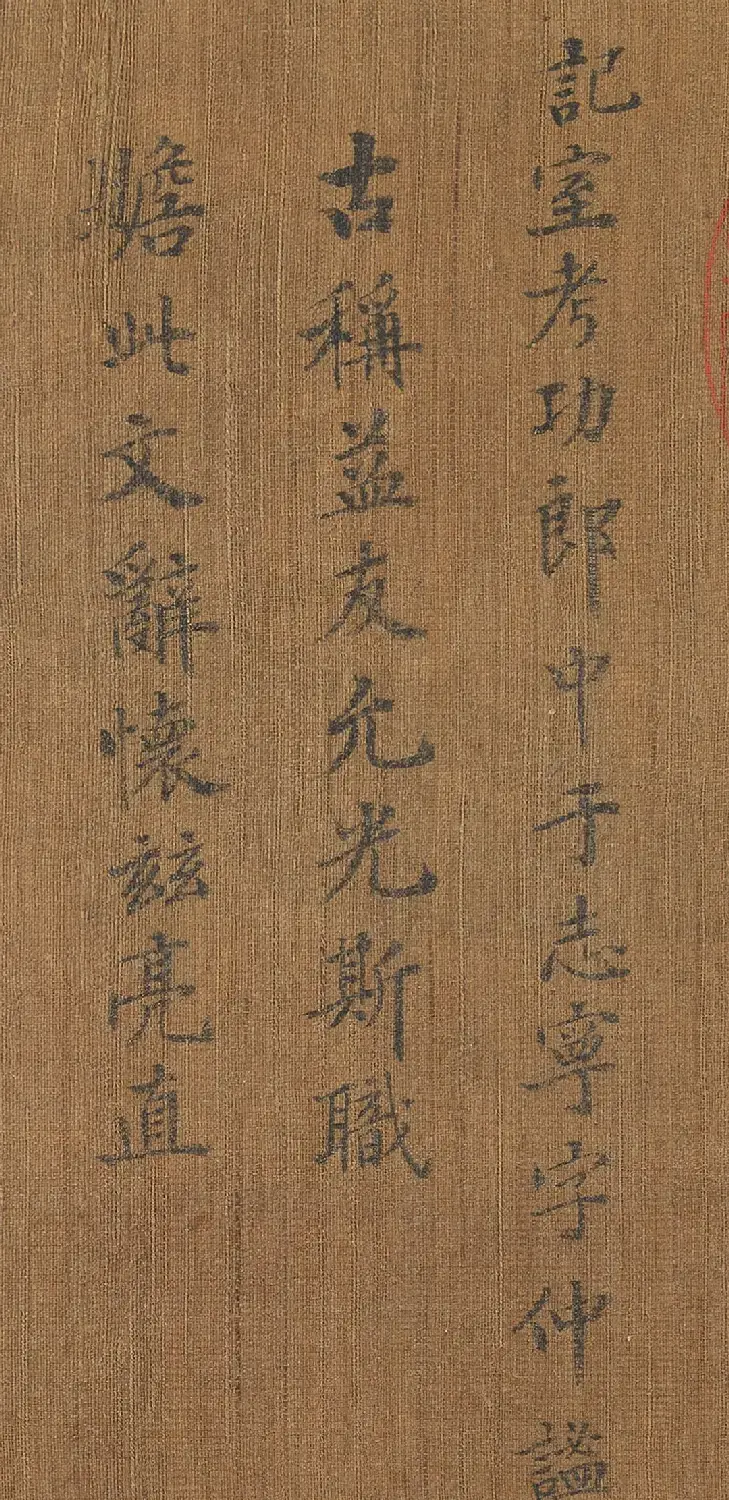 記室考功郎中于志寧字仲謐
古稱益友允光斯職
贍此文辭懷茲亮直